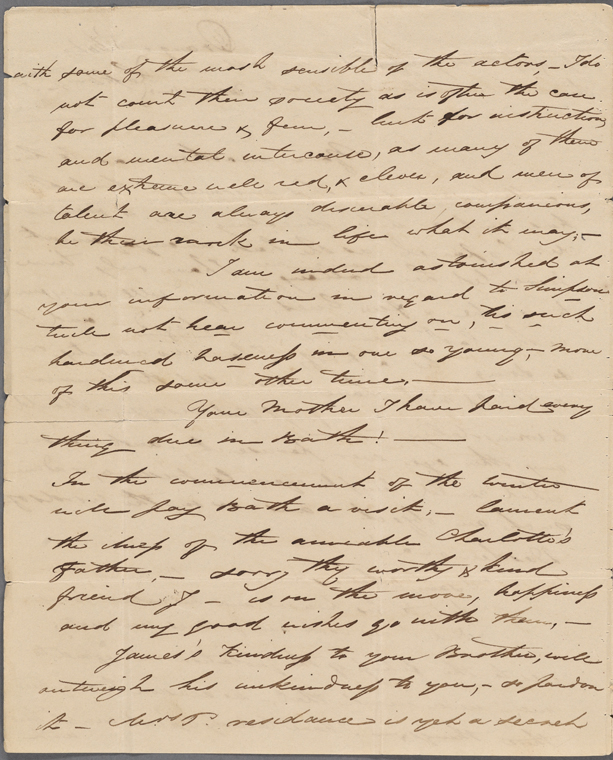 with some of the most sensible of the actors, – I do
not court their society as is often the case
for pleasure & fun, – but for instruction,
and mental intercouse, as many of them
are extreme well red, & clever, and men of
talent are always desireable companions,
be their rank in life what it may, –
I am indeed astonished at
your information in regard to Simpson
not bear commenting on, tis such
hardened baseness in one so young, – more
of this some other time, –
Your Mother I have paid every
thing due in Bath! –
In the commencement of the winter
will pay Bath a visit, – lament
the illness of the amiable Charlotte's
Father, – sorry thy worthy & kind
friend J – is on the move, happiness
and my good wishes go with them, –
James's kindness to your Brother, will
outweigh his unkindness to you, – so pardon
it – Mrs P. residance is yet a secret